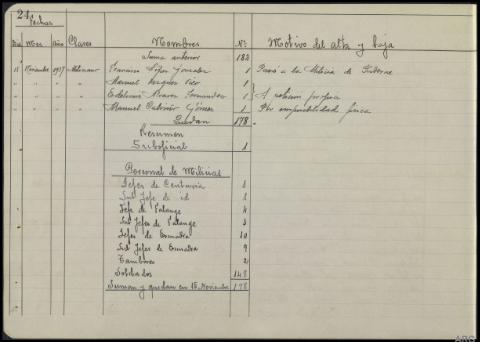 24.
Fechas
Dia Mes Año Clases Nombres Nº Motivo del alta y baja
Suma anterior 182
15 Noviembre 1937 Milicianos Francisco López González 1 Pasó a la Milicia de
" " " " Manuel 1
" " " " 1 A peticion propia
" " " " Manuel Gómez 1 Por imposibilidad fisica
Quedan 178.
Resumen
Suboficial 1
Personal de Milicias
Jefes de Centuria
Sub Jefe de id
Jefe de Falange 4
Sub Jefes de Falange
Jefes de Escuadra 10
Sub Jefes de Escuadra 9
Tambores 2
Soldados 148
Suman y quedan en 15 Noviembre 178